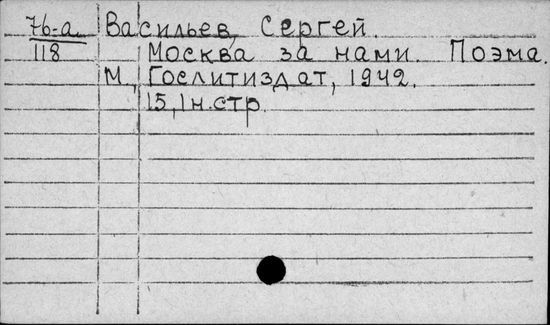 76-а Васильев, Сергей.
118 Москва за нами. Поэма.
М., Гослитиздат, 1942.
15, 1 н. стр.